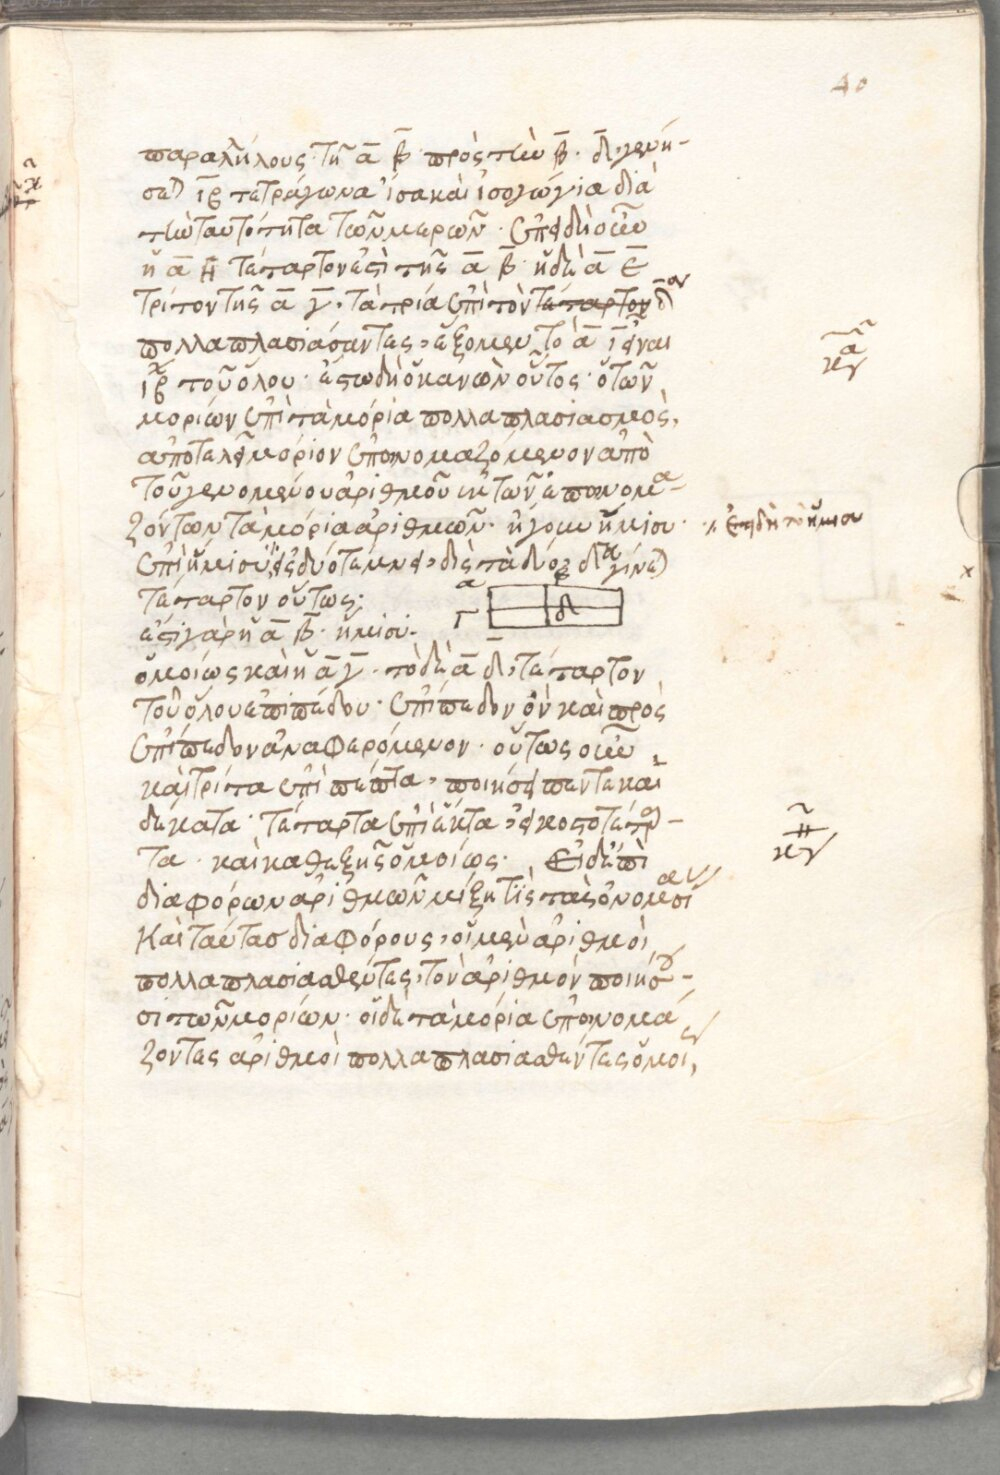 40
παραλλήλους τῇ α̅ β̅ · πρὸς τὴν β̅ · δ̅, γενή-
σεται ι̅β̅ τετράγωνα ἴσα καὶ ἰσογώνια διὰ
τὴν ταυτότητα τῶν μερῶν · ἐπειδὴ οὖν
ἡ α̅ η̅ τέταρτον ἐστὶ τῆς α̅ β̅ · ἡ δὲ α̅ ε̅
τρίτον τῆς α̅ γ̅, τὰ τρία ἐπὶ τὸν τέταρτον δ̅ον
πολλαπλασιάσαντες, ἕξομεν τὸ α̅ ι̅ εἶναι
ι̅β̅ τοῦ ὅλου · ἔστω δὴ ὁ κανὼν οὗτος · ὁ τῶν
μορίων ἐπὶ τὰ μόρια πολλαπλασιασμὸς,
ἀποτελεῖ μόριον ἐπονομαζόμενον ἀπὸ
τοῦ γενομένου ἀριθμοῦ ἐκ τῶν ἐπονομα-
ζόντων τὰ μόρια ἀριθμῶν · ἤγουν ἥμισυ ·
ἐπειδὴ τὸ ἥμισυ
τέταρτον οὕτως;
α
β
Γ
δ
ἐστὶ γὰρ ἡ α̅ β̅ · ἥμισυ ·
ὁμοίως καὶ ἡ α̅ γ̅ · τὸ δὲ α̅ δ̅, τέταρτον
τοῦ ὅλου ἐπιπέδου · ἐπίπεδον ὂν καὶ πρὸς
ἐπίπεδον ἀναφερόμενον · οὕτως οὖν
καὶ τρίτα ἐπὶ πέμπτα, ποιήσει πεντεκαι
δέκατα · τέταρτα ἐπὶ ἕκτα, εἰκοστοτέταρ-
τα · καὶ καθεξῆς ὁμοίως · Εἰ δὲ ἐπὶ
διαφόρων ἀριθμῶν μίξῃ τις τὰς ὀνομασίας
καὶ ταύτας διαφόρους, οἱ μὲν ἀριθμοὶ
πολλαπλασιασθέντες, τὸν ἀριθμὸν ποιήσου-
σι τῶν μορίων · οἱ δὲ τὰ μόρια ἐπονομά
ζοντες ἀριθμοὶ πολλαπλασιασθέντες ὁμοί,